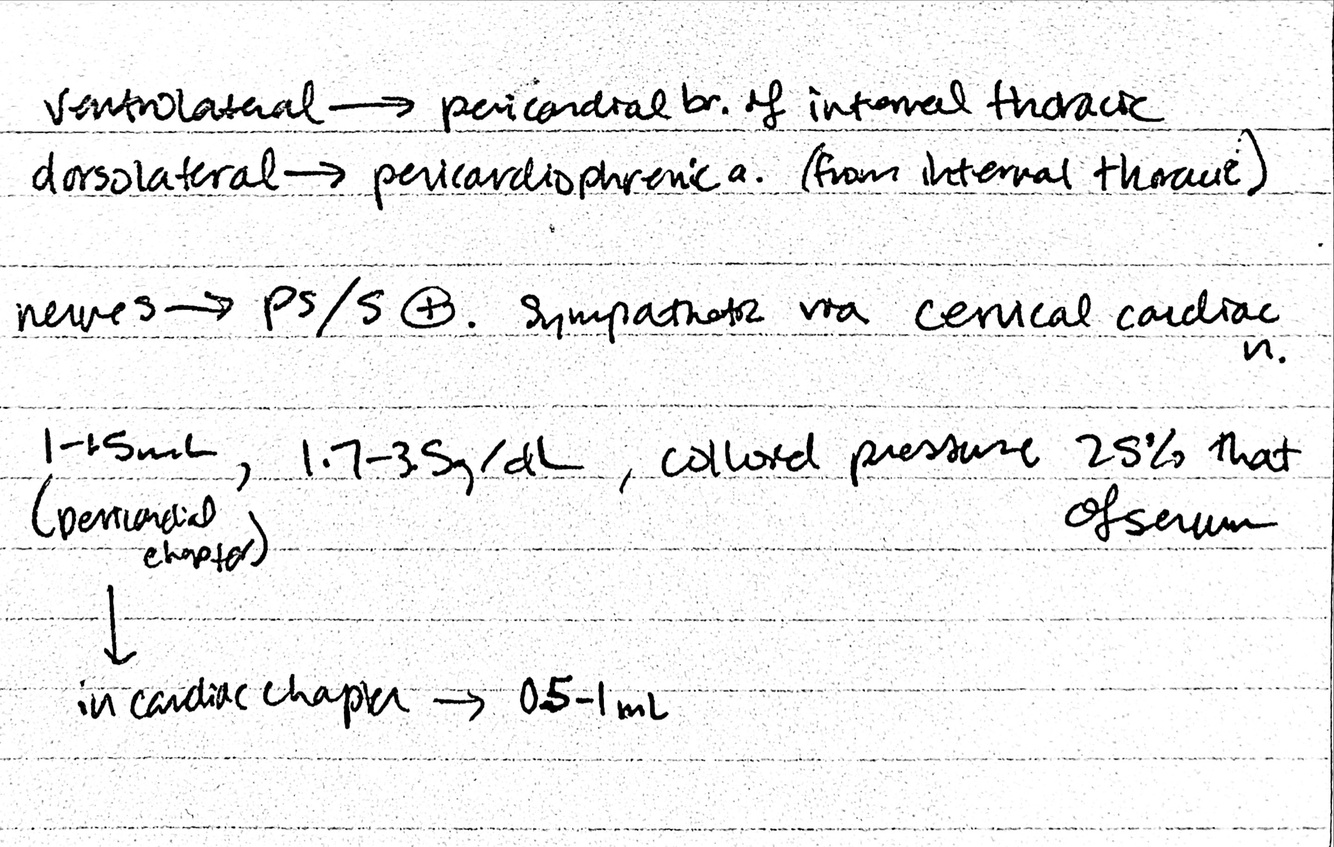 ventrolateral → pericardial br. of internal thoracic
dorsolateral → pericardiophrenic a. (from internal thoracic)
nerves → PS/S ⊕. Sympathetic via cervical cardiac
n.
1-15mL, 1.7-3.5g/dL, colloid pressure 25% that
of serum
(pericardial
chapter)
↓
in cardiac chapter → 0.5-1mL